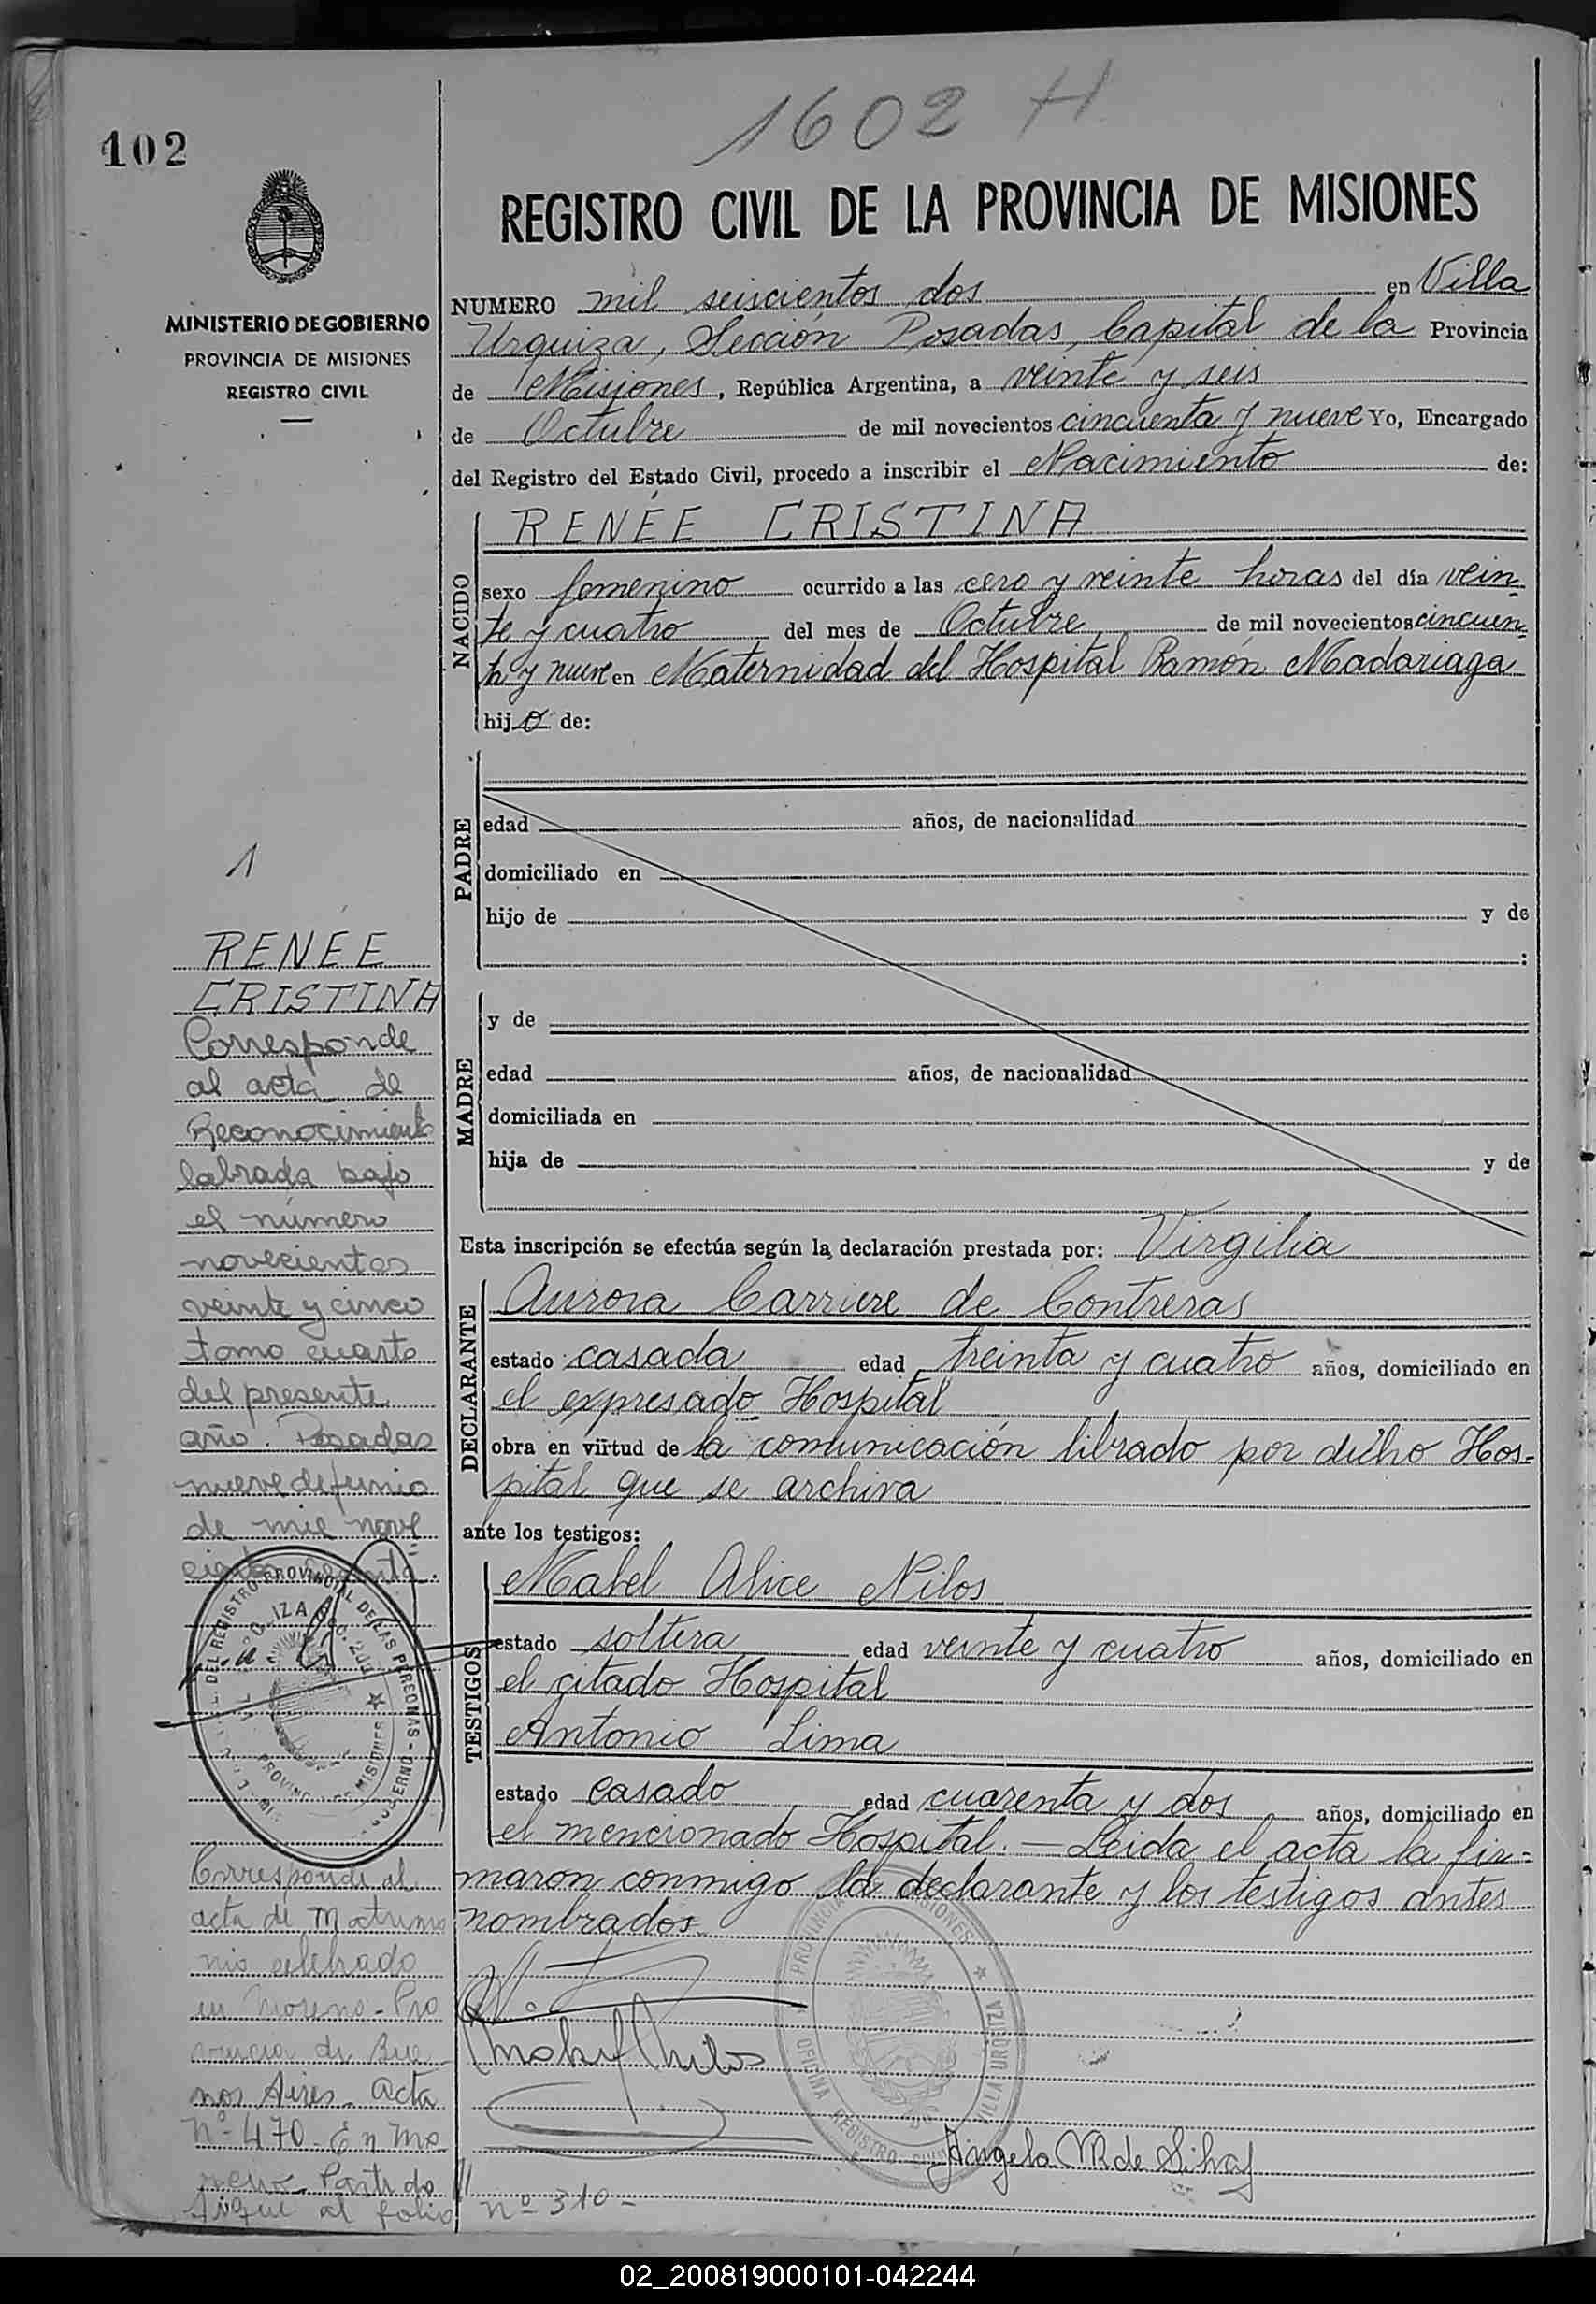 102
MINISTERIO DE GOBIERNO
PROVINCIA DE MISIONES
REGISTRO CIVIL
1602 H
REGISTRO CIVIL DE LA PROVINCIA DE MISIONES
NUMERO mil seiscientos dos en Villa
Urquiza, Sección Posadas, Capital de la Provincia
de Misiones, República Argentina, a veinte y seis
de Octubre de mil novecientos cincuenta y nueve Yo, Encargado
del Registro del Estado Civil, procedo a inscribir el Nacimiento de:
NACIDO
RENÉE CRISTINA
sexo femenino ocurrido a las cero y veinte horas del día vein-
te y cuatro del mes de Octubre de mil novecientos cincuen-
ta y nueve en Maternidad del Hospital Ramón Madariaga
hija de:
PADRE
edad años, de nacionalidad
domiciliado en
hijo de y de
:
MADRE
y de
edad años, de nacionalidad
domiciliada en
hija de y de
Esta inscripción se efectúa según la declaración prestada por: Virgilia
DECLARANTE
Aurora Carriere de Contreras
estado casada edad treinta y cuatro años, domiciliado en
el expresado Hospital
obra en virtud de la comunicación librado por dicho Hos-
pital que se archiva
ante los testigos:
TESTIGOS
Mabel Alice Nilos
estado soltera edad veinte y cuatro años, domiciliado en
el citado Hospital
Antonio Lima
estado casado edad cuarenta y dos años, domiciliado en
el mencionado Hospital. — Leida el acta la fir-
maron conmigo la declarante y los testigos antes
nombrados
PROVINCIA MISIONES
OFICINA REGISTRO CIVIL VILLA URQUIZA
Angela M R de Silva
1
RENÉE
CRISTINA
Corresponde
al acta de
Reconocimiento
labrada bajo
el número
novecientos
veinte y cinco
tomo cuarto
del presente
año. Posadas
nueve de junio
de mil nove
cientos sesenta.
DEL REGISTRO PROVINCIAL DE LAS PERSONAS
PROVINCIA DE MISIONES
Corresponde al
acta de Matrimo
nio celebrado
en Moreno - Pro
vincia de Bue
nos Aires. Acta
Nº 470 - En Mo
reno Partido
Sigue al folio nº 310 -
02_200819000101-042244